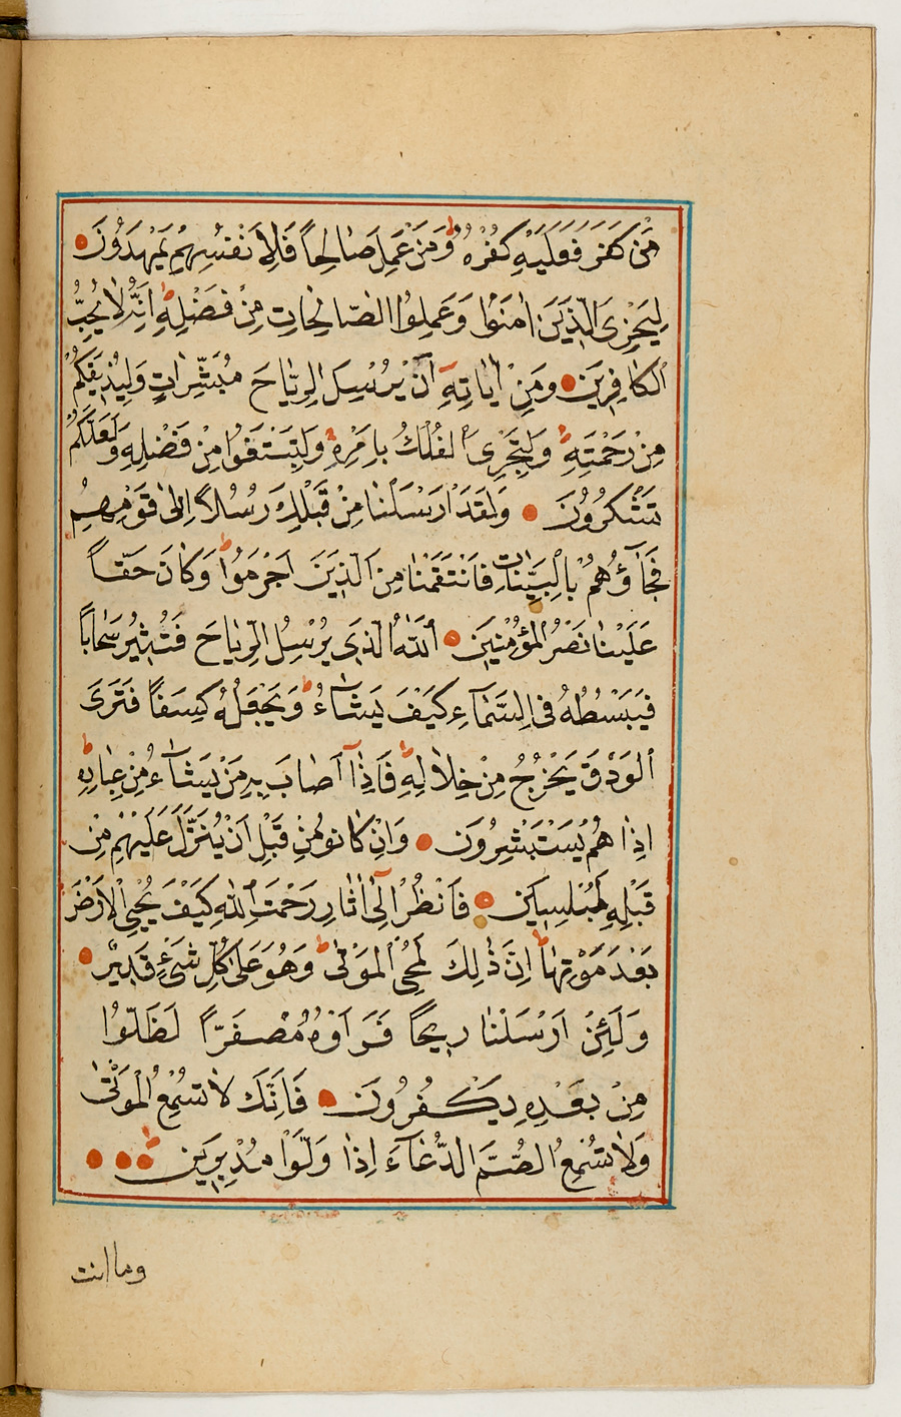 مَنْ كَفَرَ فَعَلَيْهِ كُفْرُهُ وَمَنْ عَمِلَ صَالِحاً فَلِاَنْفُسِهِمْ يَمْهَدُونَ
لِيَجْزِىَ الَّذِينَ اٰمَنُوا وَعَمِلُوا الصَّالِحَاتِ مِنْ فَضْلِهِ اِنَّهُ لَا يُحِبُّ
الْكَافِرِينَ وَمِنْ اٰيَاتِهِ اَنْ يُرْسِلَ الرِّيَاحَ مُبَشِّرَاتٍ وَلِيُذِيقَكُمْ
مِنْ رَحْمَتِهِ وَلِتَجْرِىَ الْفُلْكُ بِاَمْرِهِ وَلِتَبْتَغُوا مِنْ فَضْلِهِ وَلَعَلَّكُمْ
تَشْكُرُونَ وَلَقَدْ اَرْسَلْنَا مِنْ قَبْلِكَ رُسُلاً اِلٰى قَوْمِهِمْ
فَجَآؤُهُمْ بِالْبَيِّنَاتِ فَانْتَقَمْنَا مِنَ الَّذِينَ اَجْرَمُوا وَكَانَ حَقّاً
عَلَيْنَا نَصْرُ الْمُؤْمِنِينَ اَللّٰهُ الَّذِى يُرْسِلُ الرِّيَاحَ فَتُثِيرُ سَحَاباً
فَيَبْسُطُهُ فِى السَّمَآءِ كَيْفَ يَشَآءُ وَيَجْعَلُهُ كِسَفاً فَتَرَى
الْوَدْقَ يَخْرُجُ مِنْ خِلَالِهِ فَاِذَا اَصَابَ بِهِ مَنْ يَشَآءُ مِنْ عِبَادِهِ
اِذَا هُمْ يَسْتَبْشِرُونَ وَاِنْ كَانُوا مِنْ قَبْلِ اَنْ يُنَزَّلَ عَلَيْهِمْ مِنْ
قَبْلِهِ لَمُبْلِسِينَ فَانْظُرْ اِلٰى اٰثَارِ رَحْمَتِ اللّٰهِ كَيْفَ يُحْيِى الْاَرْضَ
بَعْدَ مَوْتِهَا اِنَّ ذٰلِكَ لَمُحْىِ الْمَوْتٰى وَهُوَ عَلٰى كُلِّ شَىْءٍ قَدِيرٌ
وَلَئِنْ اَرْسَلْنَا رِيحاً فَرَاَوْهُ مُصْفَرّاً لَظَلُّوا
مِنْ بَعْدِهِ يَكْفُرُونَ فَاِنَّكَ لَا تُسْمِعُ الْمَوْتٰى
وَلَا تُسْمِعُ الصُّمَّ الدُّعَآءَ اِذَا وَلَّوْا مُدْبِرِينَ
وما انت